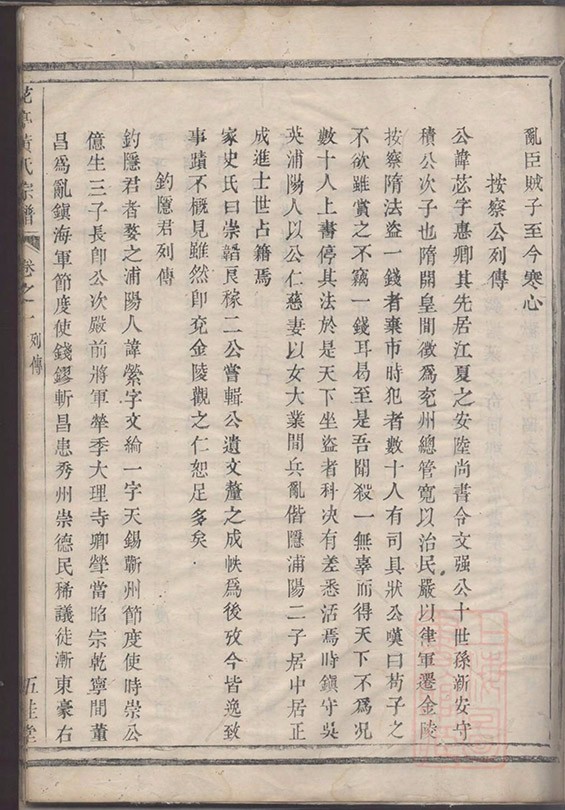 亂臣賊子至今寒心
按察公列傳
公諱苾字惠卿其先居江夏之安陸尚書令文强公十世孫新安守
積公次子也隋開皇間徵爲兖州總管寛以治民嚴以律軍遷金陵
按察隋法盜一錢者棄市時犯者數十人有司具狀公嘆曰苟子之
不欲雖賞之不竊一錢耳易至是吾聞殺一無辜而得天下不爲况
數十人上書停其法於是天下坐盜者科决有差悉活焉時鎮守吳
英浦陽人以公仁慈妻以女大業間兵亂偕隱浦陽二子居中居正
成進士世占籍焉
家史氏曰崇韜艮稼二公嘗輯公遺文釐之成帙爲後攷今皆逸致
事蹟不概見雖然卽兖金陵觀之仁恕足多矣
釣隱君列傳
釣隱君者婺之浦陽人諱縈字文綸一字天錫蘄州節度使時崇公
億生三子長卽公次嚴前將軍犖季大理寺卿犖當昭宗乾寧間董
昌爲亂鎮海軍節度使錢鏐斬昌患秀州崇德民稀議徒漸東豪右
花亭黃氏宗譜
卷之一
列傳
五桂堂